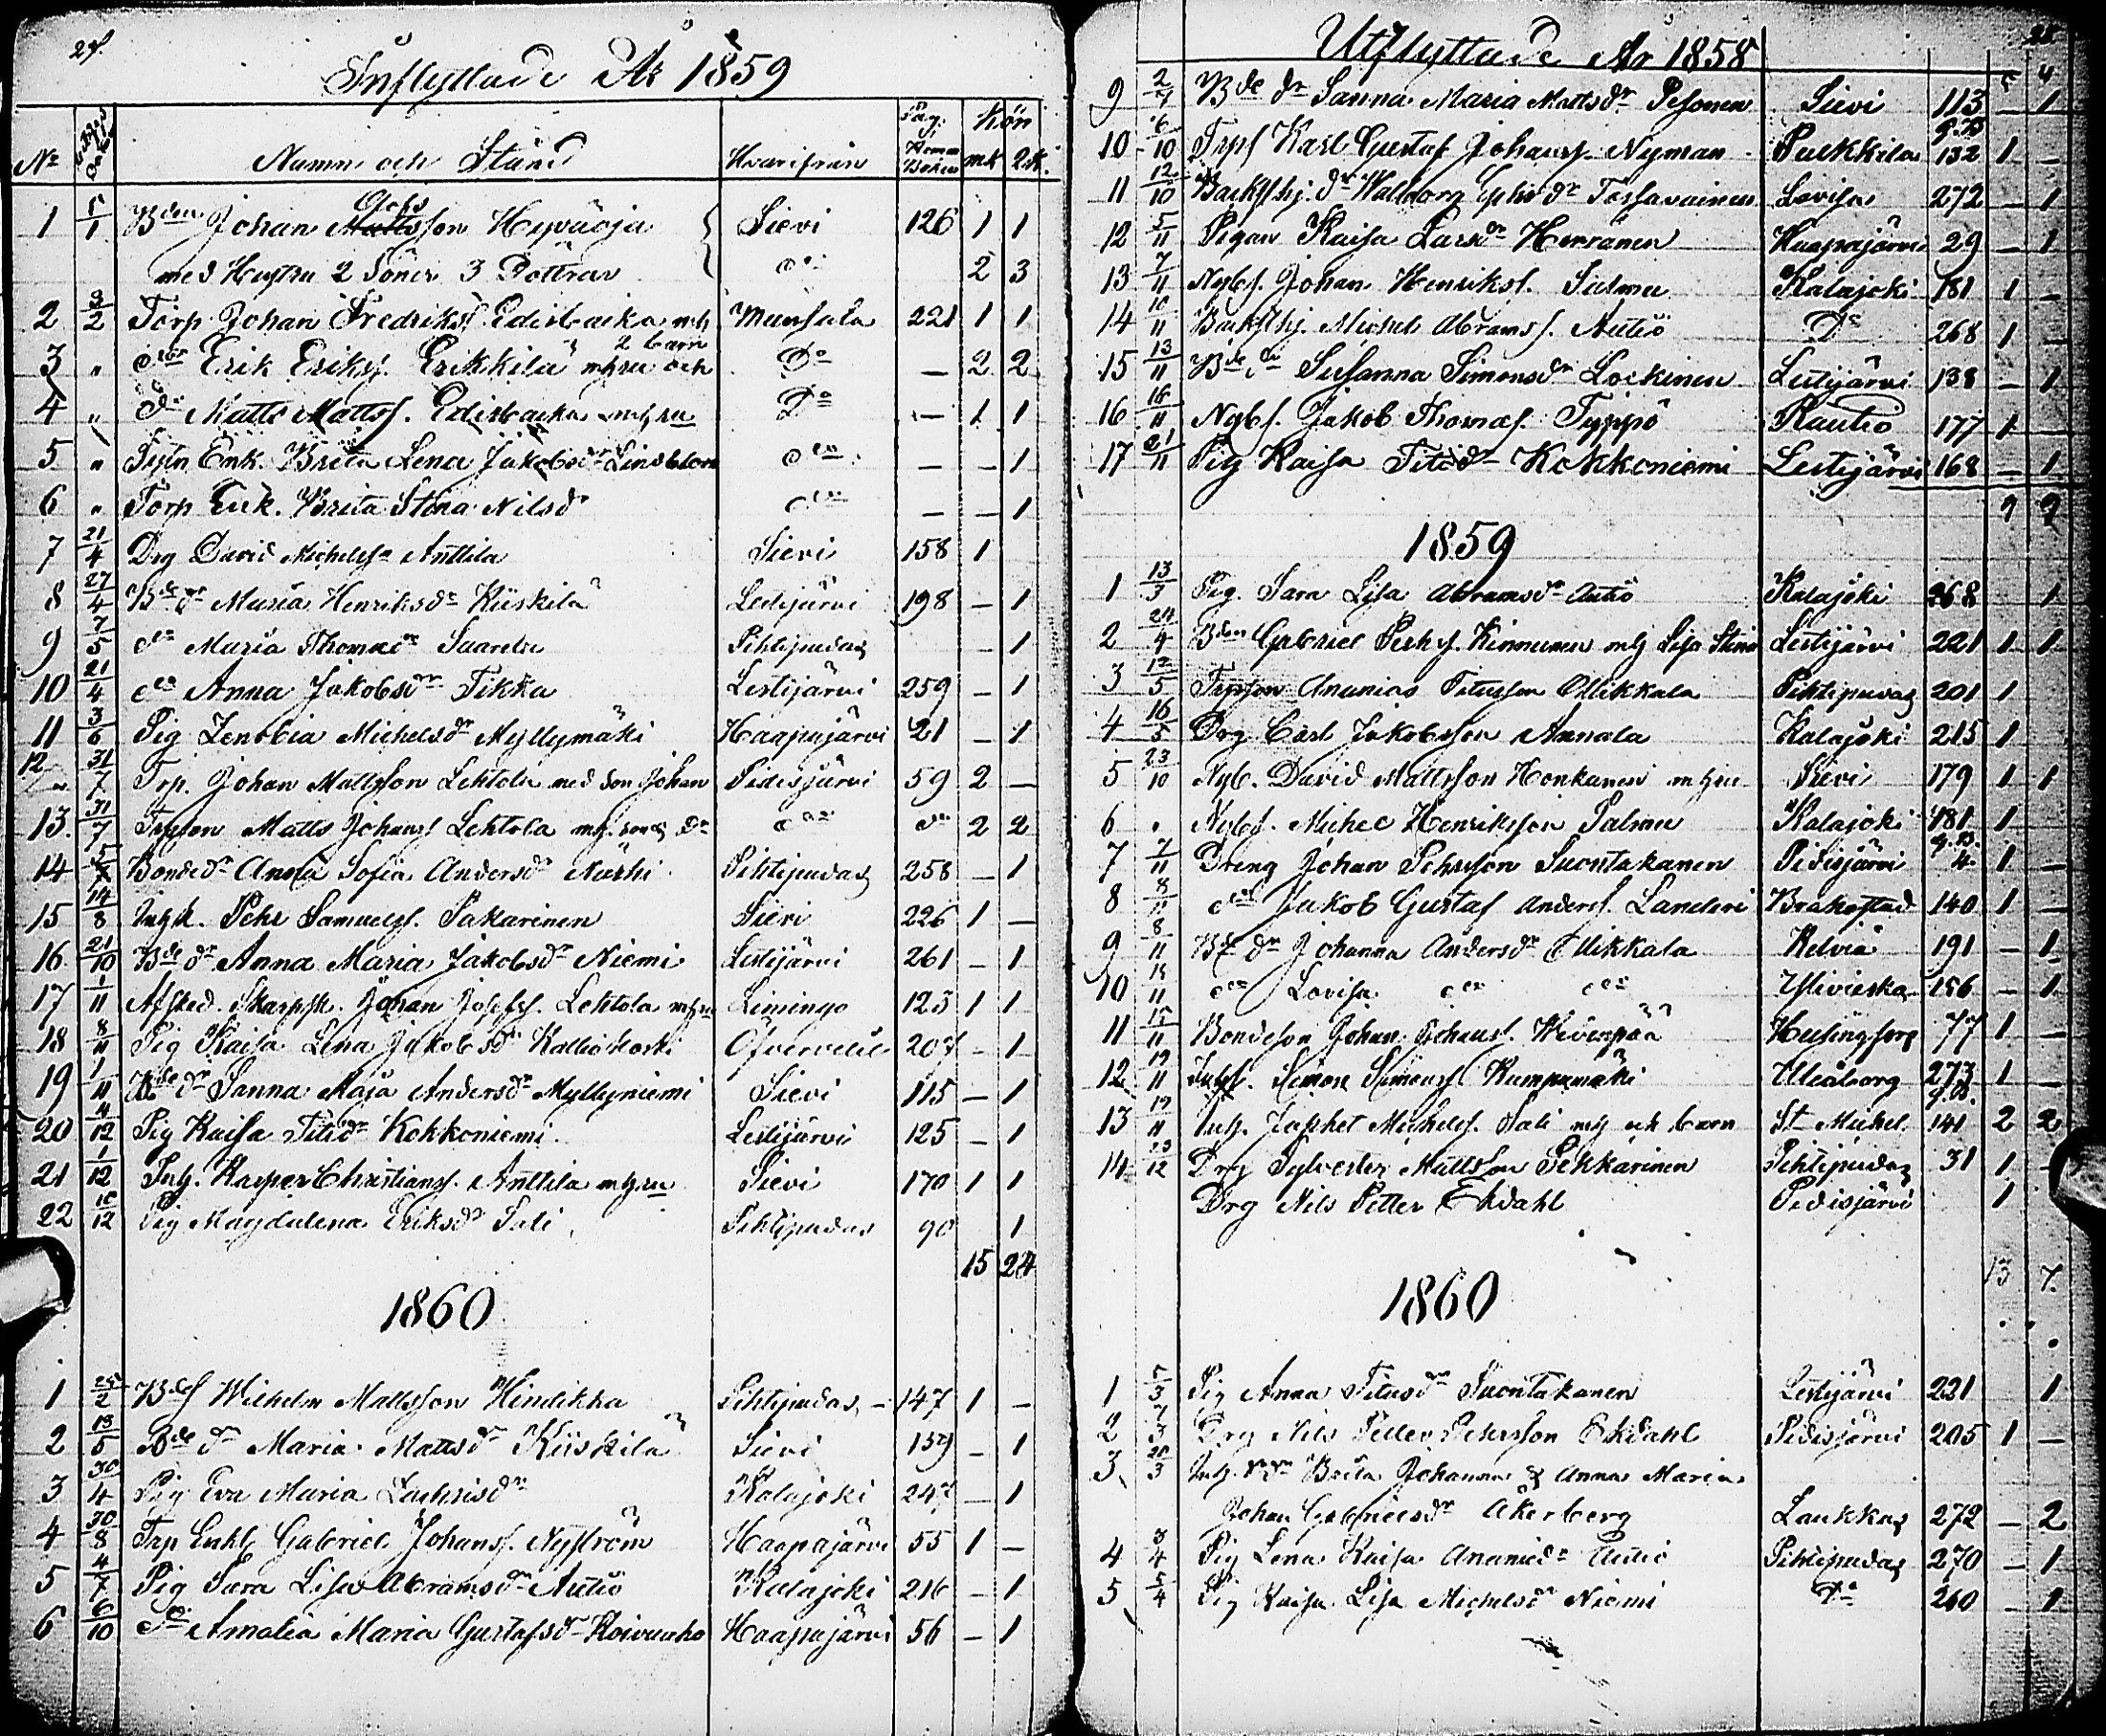 24.
Inflyttade År 1859
No Namn och Stånd Hvarifrån Pag. i Komm. Boken Kön mk qk.
1 5/1 Bden Johan Mattsson Hyväoja Sievi 126 1 1
med Hustru 2 Söner 3 Döttrar do 2 3
2 3/2 Torp Johan Fredriksf. Edisbacka mh Munsala 221 1 1
2 barn
3 " do Erik Eriksf. Erikkilä mhru och Do — 2 2
4 " do Matts Mattsf. Edisbacka mhru Do — 1 1
5 " Enk. Brita Lena Jakobsdr Lindblom do — — 1
6 " Torp Enk. Brita Stina Nilsdr do — — 1
7 21/4 Drg David Michelss Anttila Sievi 158 1
8 27/4 Bde dr Maria Henriksdr Kiiskilä Lestijärvi 198 — 1
9 7/5 do Maria Thomasdr Saarela Pihtipudas 1
10 21/4 do Anna Jakobsdr Tikka Lestijärvi 259 — 1
11 3/6 Pig Zenobia Michelsdr Myllymäki Haapajärvi 21 — 1
12 31/7 Trp. Johan Mattsson Lehtola med son Johan Pidisjärvi 59 2 —
13. 31/7 Matts Johansf Lehtola do do 2 2
14 5/7 Bonde dr Anna Sofia Andersdr Kärki Pihtipudas 258 — 1
15 14/8 Pehr Samuelsf. Pakarinen Sievi 226 1 —
16 21/10 Bde dr Anna Maria Jakobsdr Niemi Lestijärvi 261 — 1
17 1/11 Afsked. Skarpsk. Johan Josefsf. Lehtola mhru Limingo 123 1 1
18 8/11 Pig Kaisa Lena Jakobsdr Kalliokoski Öfvervetil 207 — 1
19 1/11 Bde dr Sanna Maja Andersdr Myllyniemi Sievi 115 — 1
20 4/12 Pig Kaisa Titusdr Kokkoniemi Lestijärvi 125 — 1
21 1/12 Inh. Kasper Christiansf. Anttila mhru Sievi 170 1 1
22 16/12 Pig Magdalena Eriksdr Sali Pihtipudas 90 1
15 24
1860
1 25/2 Bdef Wilhelm Mattsson Hindikka Pihtipudas — 147 1 —
2 13/5 Bde dr Maria Mattsdr Kiiskilä Sievi 159 — 1
3 30/4 Pig Eva Maria Zachrisdr Kalajoki 247 — 1
4 30/8 Trp Enkl Gabriel Johansf. Nyström Haapajärvi 55 1 —
5 4/7 Pig Sara Lisa Abramsdr Autio Kalajoki 216 — 1
6 6/10 do Amalia Maria Gustafsdr Koivuaho Haapajärvi 56 — 1
25
Utflyttade År 1858
5 4
9 2/9 Bde dr Sanna Maria Mattsdr Pesonen Sievi 113 — 1
10 6/10 Trpf Karl Gustaf Johansf Nyman Pulkkila g.B. 132 1 —
11 12/10 Backsthj. dr Walborg Tossavainen Lovisa 272 — 1
12 5/11 Pigan Kaisa Larsdr Herranen Haapajärvi 29 — 1
13 7/11 Nybf. Johan Henriksf. Salmu Kalajoki 181 1 —
14 10/11 Backsthj. Michel Abramsf. Autio Do 268 1 —
15 13/11 Bde dr Susanna Simonsdr Lockinen Lestijärvi 138 — 1
16 16/11 Nybf. Jakob Thomasf. Typpö Rautio 177 1
17 21/11 Pig Kaisa Titidr Kokkoniemi Lestijärvi 168 — 1
9 9
1859
1 13/3 Pig. Sara Lisa Abramsdr Autio Kalajoki 268 1
2 24/4 Bden Gabriel Pehrsf. Kinnunen mh Lisa Stina Lestijärvi 221 1 1
3 12/5 Ananias Titusson Ollikkala Pihtipudas 201 1
4 16/5 Drg Carl Jakobsson Annala Kalajoki 215 1
5 23/10 Nyb. David Mattsson Honkanen mhru Sievi 179 1 1
6 " Nybf. Michel Henriksson Salmu Kalajoki 181 1
7 7/11 Dreng Johan Pehrsson Suontakanen Pidisjärvi g.B. 4 1 —
8 8/11 do Jakob Gustaf Andersf. Landeri Brahestad 140 1 —
9 8/11 Bde dr Johanna Andersdr Ollikkala Kelviå 191 — 1
10 18/11 do Lovisa do do Ylivieska 156 — 1
11 15/11 Bondeson Johan Johansf. Hevonpää Helsingfors 77 1 —
12 19/11 Simon Simonsf. Kumpumäki Uleåborg 273 1 —
13 19/11 Inh. Japhet Michelsf. Sali mh och barn St Michel g.B. 141 2 2
14 23/12 Drg Sylvester Mattsson Pekkarinen Pihtipudas 31 1 —
Drg Nils Petter Ekdahl Pidisjärvi 1
13 7.
1860
1 5/3 Pig Anna Titusdr Suontakanen Lestijärvi 221 1
2 7/3 Drg Nils Petter Pehrsson Ekdahl Pidisjärvi 205 1 —
3 20/3 Inh. Brita Johanna & Anna Maria
Johan Gabrielsdr Åkerberg Laukkas 272 — 2
4 3/4 Pig Lena Kaisa Ananiedr Autio Pihtipudas 270 — 1
5 5/4 Pig Kaisa Lisa Michelsdr Niemi Do 260 — 1